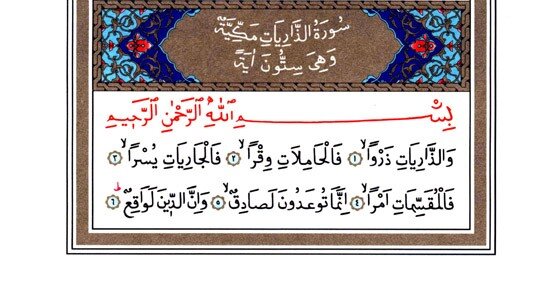 سُورَةُ الذَّارِيَاتِ مَكِّيَّةٌ
وَهِيَ سِتُّونَ اٰيَةً
بِسْــــــــمِ اللّٰهِ الرَّحْمٰنِ الرَّحٖيمِ
وَالذَّارِيَاتِ ذَرْوًاۙ ﴿١﴾ فَالْحَامِلَاتِ وِقْرًاۙ ﴿٢﴾ فَالْجَارِيَاتِ يُسْرًاۙ ﴿٣﴾
فَالْمُقَسِّمَاتِ اَمْرًاۙ ﴿٤﴾ اِنَّمَا تُوعَدُونَ لَصَادِقٌۙ ﴿٥﴾ وَاِنَّ الدّٖينَ لَوَاقِعٌۜ ﴿٦﴾